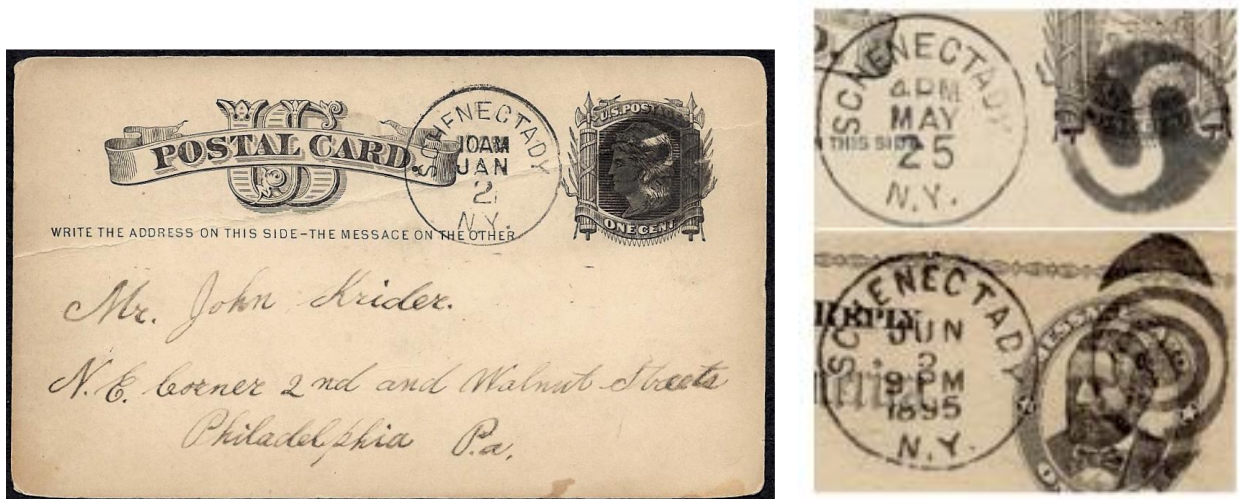 U.S. POSTAGE
US
POSTAL CARD.
SCHENECTADY
10AM
JAN
2
N.Y.
ONE CENT
WRITE THE ADDRESS ON THIS SIDE–THE MESSAGE ON THE OTHER
Mr. John Krider.
N.E. Corner 2nd and Walnut Streets
Philadelphia Pa.
SCHENECTADY
4PM
MAY
25
N.Y.
THIS SIDE
SCHENECTADY
REPLY
JUN
3
9PM
1895
N.Y.